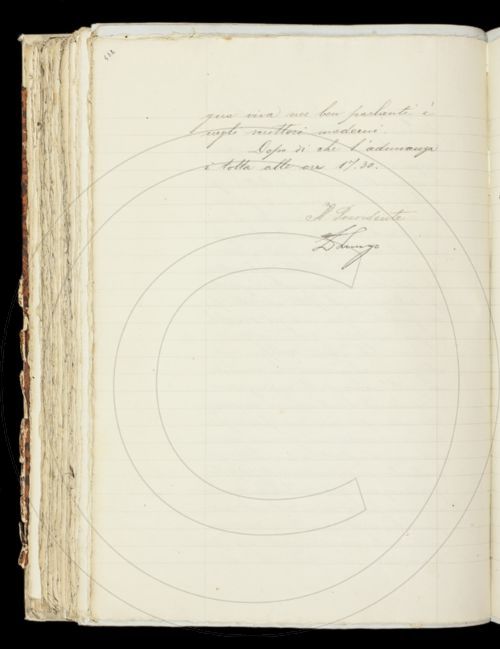 gua viva nei ben parlanti e
negli scrittori moderni.
Dopo di che l'adunanza
è tolta alle ore 17.30.
Il Presidente